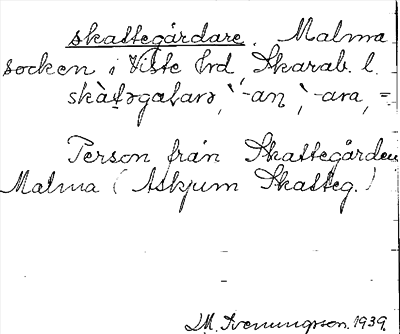 skattegårdare. Malma
socken i Viste hrd, Skarab. l.
skàt̯əgaɫarə, `-an, `-ara, =.
Person från Skattegården
Malma (Askjum Skatteg.)
M. Svenungsson. 1939.